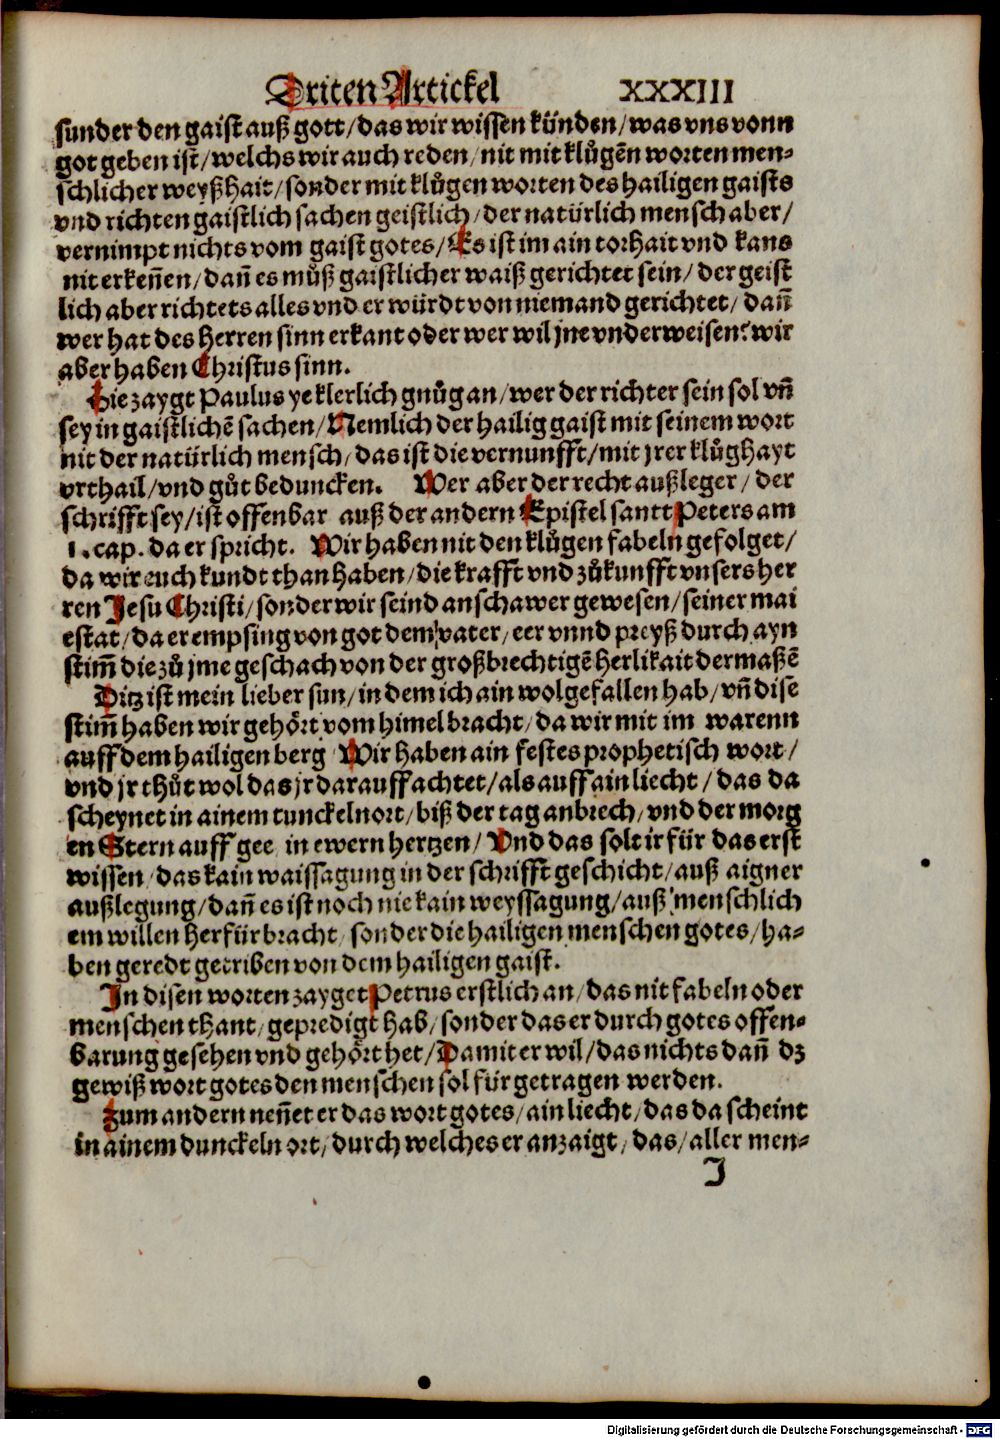 Driten Artickel XXXIII
sunder den gaist auß gott/das wir wissen künden/was vns vonn
got geben ist/welchs wir auch reden/nit mit klůgẽn worten men-
schlicher weyßhait/sonder mit klůgen worten des hailigen gaists
vnd richten gaistlich sachen geistlich/der natürlich mensch aber/
vernimpt nichts vom gaist gotes/Es ist im ain torhait vnd kans
nit erkeñen/dañ es můß gaistlicher waiß gerichtet sein/der geist
lich aber richtets alles vnd er würdt von niemand gerichtet/dañ
wer hat des Herren sinn erkant oder wer wil jne vnderweisen? wir
aber haben Christus sinn.
Hie zaygt Paulus ye klerlich gnůg an/wer der richter sein sol vñ
sey in gaistlichẽ sachen/Nemlich der hailig gaist mit seinem wort
nit der natürlich mensch/das ist die vernunfft/mit jrer klůghayt
vrthail/vnd gůt beduncken. Wer aber der recht außleger/der
schrifft sey/ist offenbar auß der andern Epistel santt Peters am
1.cap. da er spricht. Wir haben nit den klůgen fabeln gefolget/
da wir euch kundt than haben/die krafft vnd zůkunfft vnsers her
ren Jesu Christi/sonder wir seind anschawer gewesen/seiner mai
estat/da er empfing von got dem vater/eer vnnd preyß durch ayn
stim̃ die zů jme geschach von der großbrechtigẽ herlikait dermaßẽ
Ditz ist mein lieber sun/in dem ich ain wolgefallen hab/vñ dise
stim̃ haben wir gehört vom himel bracht/da wir mit im warenn
auff dem hailigen berg Wir haben ain festes prophetisch wort/
vnd jr thůt wol das jr darauff achtet/als auff ain liecht/das da
scheynet in ainem tunckeln ort/biß der tag anbrech/vnd der morg
en Stern auff gee in ewern hertzen/Vnd das solt ir für das erst
wissen/das kain waissagung in der schrifft geschicht/auß aigner
außlegung/dañ es ist noch nie kain weyssagung/auß menschlich
em willen herfür bracht/sonder die hailigen menschen gotes/ha-
ben geredt getriben von dem hailigen gaist.
In disen worten zayget Petrus erstlich an/das nit fabeln oder
menschen thant/gepredigt hab/sonder das er durch gotes offen-
barung gesehen vnd gehört het/Damit er wil/das nichts dañ dz
gewiß wort gotes den menschen sol für getragen werden.
Zum andern neñet er das wort gotes/ain liecht/das da scheint
in ainem dunckeln ort/durch welches er anzaigt/das/aller men-
J
Digitalisierung gefördert durch die Deutsche Forschungsgemeinschaft - DFG